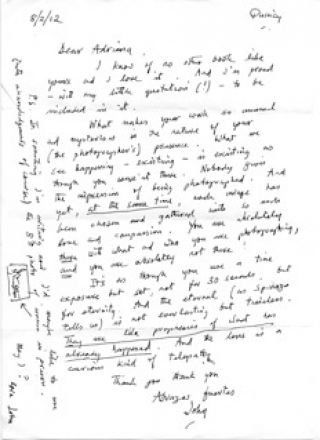 8/2/12
Quincy
Dear Adriana,
I know of no other book like
yours and I love it. And I'm proud
– with my little quotation (!) – to be
included in it.
What makes your work so unusual
and mysterious is the nature of your
(the photographer's) presence. What we
see happening – existing – is existing as
though you weren't there. Nobody gives
the impression of being photographed. And
yet, at the same time, each image has
been chosen and gathered with so much
love and compassion. You are absolutely
with what and who you are photographing,
and you are absolutely not there.
It's as though you use a time
exposure but set, not for 30 seconds, but
for eternity. And the eternal (as Spinoza
tells us) is not everlasting but
They are like prophecies of what has
already happened. And the lens is a
curious kind of telepathy.
Thank you thank you
Abrazos
John
P.S.
(with acknowledgments of course)
May I?
John